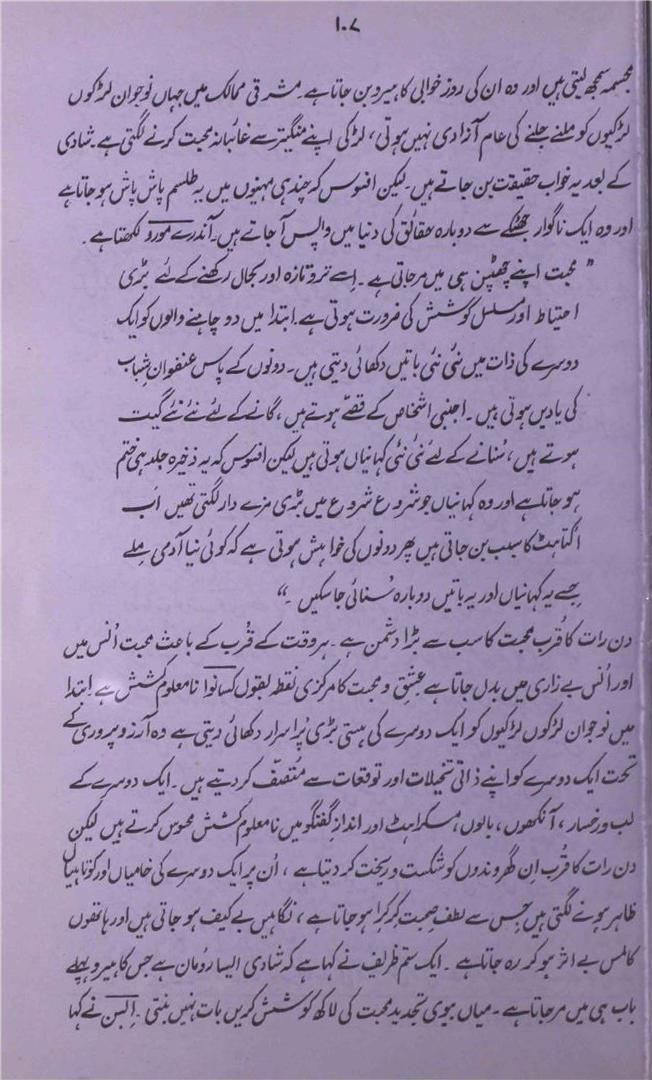 ۱۰۷
مجسمہ سمجھ لیتی ہیں اور وہ ان کی روز خوابی کا ہیرو بن جاتا ہے۔ مشرقی ممالک میں جہاں نوجوان لڑکوں
لڑکیوں کو ملنے جلنے کی عام آزادی نہیں ہوتی، لڑکی اپنے منگیتر سے غائبانہ محبت کرنے لگتی ہے۔ شادی
کے بعد یہ خواب حقیقت بن جاتے ہیں۔ لیکن افسوس کہ چند ہی مہینوں میں یہ طلسم پاش پاش ہو جاتا ہے
اور وہ ایک ناگوار جھٹکے سے دوبارہ حقائق کی دنیا میں واپس آ جاتے ہیں۔ آندرے مورو لکھتا ہے۔
” محبت اپنے چھٹپن ہی میں مر جاتی ہے۔ اسے تر و تازہ اور بحال رکھنے کے لئے بڑی
احتیاط اور مسلسل کوشش کی ضرورت ہوتی ہے۔ ابتدا میں دو چاہنے والوں کو ایک
دوسرے کی ذات میں نئی نئی باتیں دکھائی دیتی ہیں۔ دونوں کے پاس عنفوانِ شباب
کی یادیں ہوتی ہیں۔ اجنبی اشخاص کے قصے ہوتے ہیں، گانے کے لئے نئے نئے گیت
ہوتے ہیں، سُنانے کے لئے نئی نئی کہانیاں ہوتی ہیں لیکن افسوس کہ یہ ذخیرہ جلد ہی ختم
ہو جاتا ہے اور وہ کہانیاں جو شروع شروع میں بڑی مزے دار لگتی تھیں اب
اکتاہٹ کا سبب بن جاتی ہیں پھر دونوں کی خواہش ہوتی ہے کہ کوئی نیا آدمی ملے
جسے یہ کہانیاں اور یہ باتیں دوبارہ سُنائی جا سکیں ۔“
دن رات کا قُرب محبت کا سب سے بڑا دشمن ہے۔ ہر وقت کے قُرب کے باعث محبت اُنس میں
اور اُنس بے زاری میں بدل جاتا ہے عشق و محبت کا مرکزی نقطہ بقول کسانوا نامعلوم کشش ہے۔ ابتدا
میں نوجوان لڑکوں لڑکیوں کو ایک دوسرے کی ہستی بڑی پُراسرار دکھائی دیتی ہے وہ آرزو پروری کے
تحت ایک دوسرے کو اپنے ذاتی تخیلات اور توقعات سے متصف کر دیتے ہیں۔ ایک دوسرے کے
لب و رخسار، آنکھوں، بالوں، مسکراہٹ اور اندازِ گفتگو میں نامعلوم کشش محسوس کرتے ہیں لیکن
دن رات کا قُرب اِن گھروندوں کو شکست و ریخت کر دیتا ہے، اُن پر ایک دوسرے کی خامیاں اور کوتاہیاں
ظاہر ہونے لگتی ہیں جس سے لطفِ صحبت کِرکِرا ہو جاتا ہے، نگاہیں بے کیف ہو جاتی ہیں اور ہاتھوں
کا لمس بے اثر ہو کر رہ جاتا ہے۔ ایک ستم ظریف نے کہا ہے کہ شادی ایسا رُومان ہے جس کا ہیرو پہلے
باب ہی میں مر جاتا ہے۔ میاں بیوی تجدیدِ محبت کی لاکھ کوشش کریں بات نہیں بنتی۔ اِبسن نے کہا